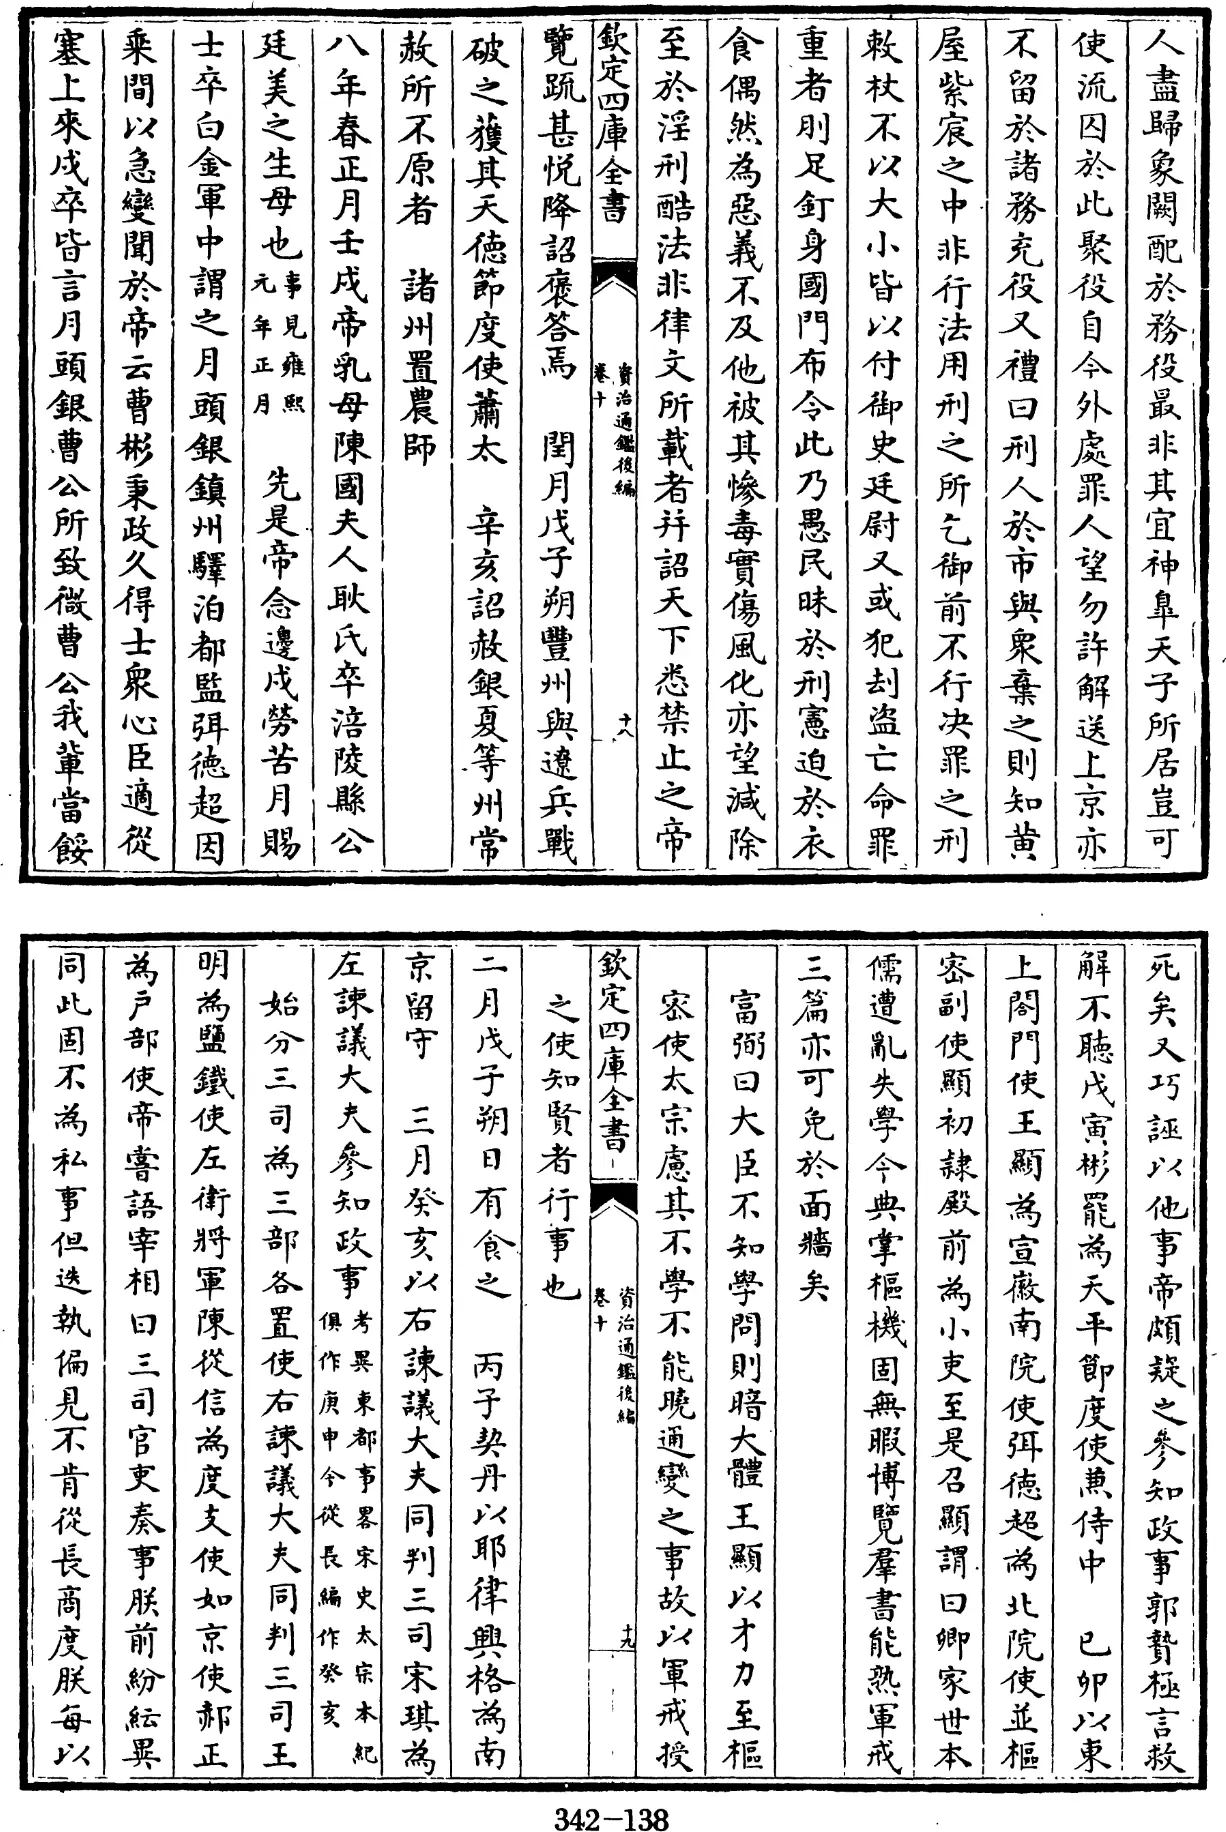 人盡歸象闕配於務役最非其宜神臯天子所居豈可
使流囚於此聚役自今外處罪人望勿許解送上京亦
不留於諸務充役又禮曰刑人於市與衆棄之則知黄
屋紫宸之中非行法用刑之所乞御前不行决罪之刑
敕杖不以大小皆以付御史廷尉又或犯刦盜亡命罪
重者刖足釘身國門布令此乃愚民昧於刑憲迫於衣
食偶然為惡義不及他被其慘毒實傷風化亦望減除
至於淫刑酷法非律文所載者并詔天下悉禁止之帝
欽定四庫全書
資治通鑑後編
卷十
十八
覽疏甚悦降詔褒答焉 閏月戊子朔豐州與遼兵戰
破之獲其天德節度使蕭太 辛亥詔赦銀夏等州常
赦所不原者 諸州置農師
八年春正月壬戌帝乳母陳國夫人耿氏卒涪陵縣公
廷美之生母也事見雍熙元年正月 先是帝念邊戍勞苦月賜
士卒白金軍中謂之月頭銀鎮州驛泊都監弭德超因
乘間以急變聞於帝云曹彬秉政久得士衆心臣適從
塞上來戍卒皆言月頭銀曹公所致微曹公我輩當餒
死矣又巧誣以他事帝頗疑之參知政事郭贄極言救
解不聽戊寅彬罷為天平節度使兼侍中 已卯以東
上閤門使王顯為宣徽南院使弭德超為北院使並樞
密副使顯初隷殿前為小吏至是召顯謂曰卿家世本
儒遭亂失學今典掌樞機固無暇博覽羣書能熟軍戒
三篇亦可免於面牆矣
富弼曰大臣不知學問則暗大體王顯以才力至樞
密使太宗慮其不學不能曉通變之事故以軍戒授
欽定四庫全書
資治通鑑後編
卷十
十九
之使知賢者行事也
二月戊子朔日有食之 丙子契丹以耶律興格為南
京留守 三月癸亥以右諫議大夫同判三司宋琪為
左諫議大夫參知政事考異東都事畧宋史太宗本紀俱作庚申今從長編作癸亥
始分三司為三部各置使右諫議大夫同判三司王
明為鹽鐵使左衛將軍陳從信為度支使如京使郝正
為戶部使帝嘗語宰相曰三司官吏奏事朕前紛紜異
同此固不為私事但迭執偏見不肯從長商度朕每以
342-138